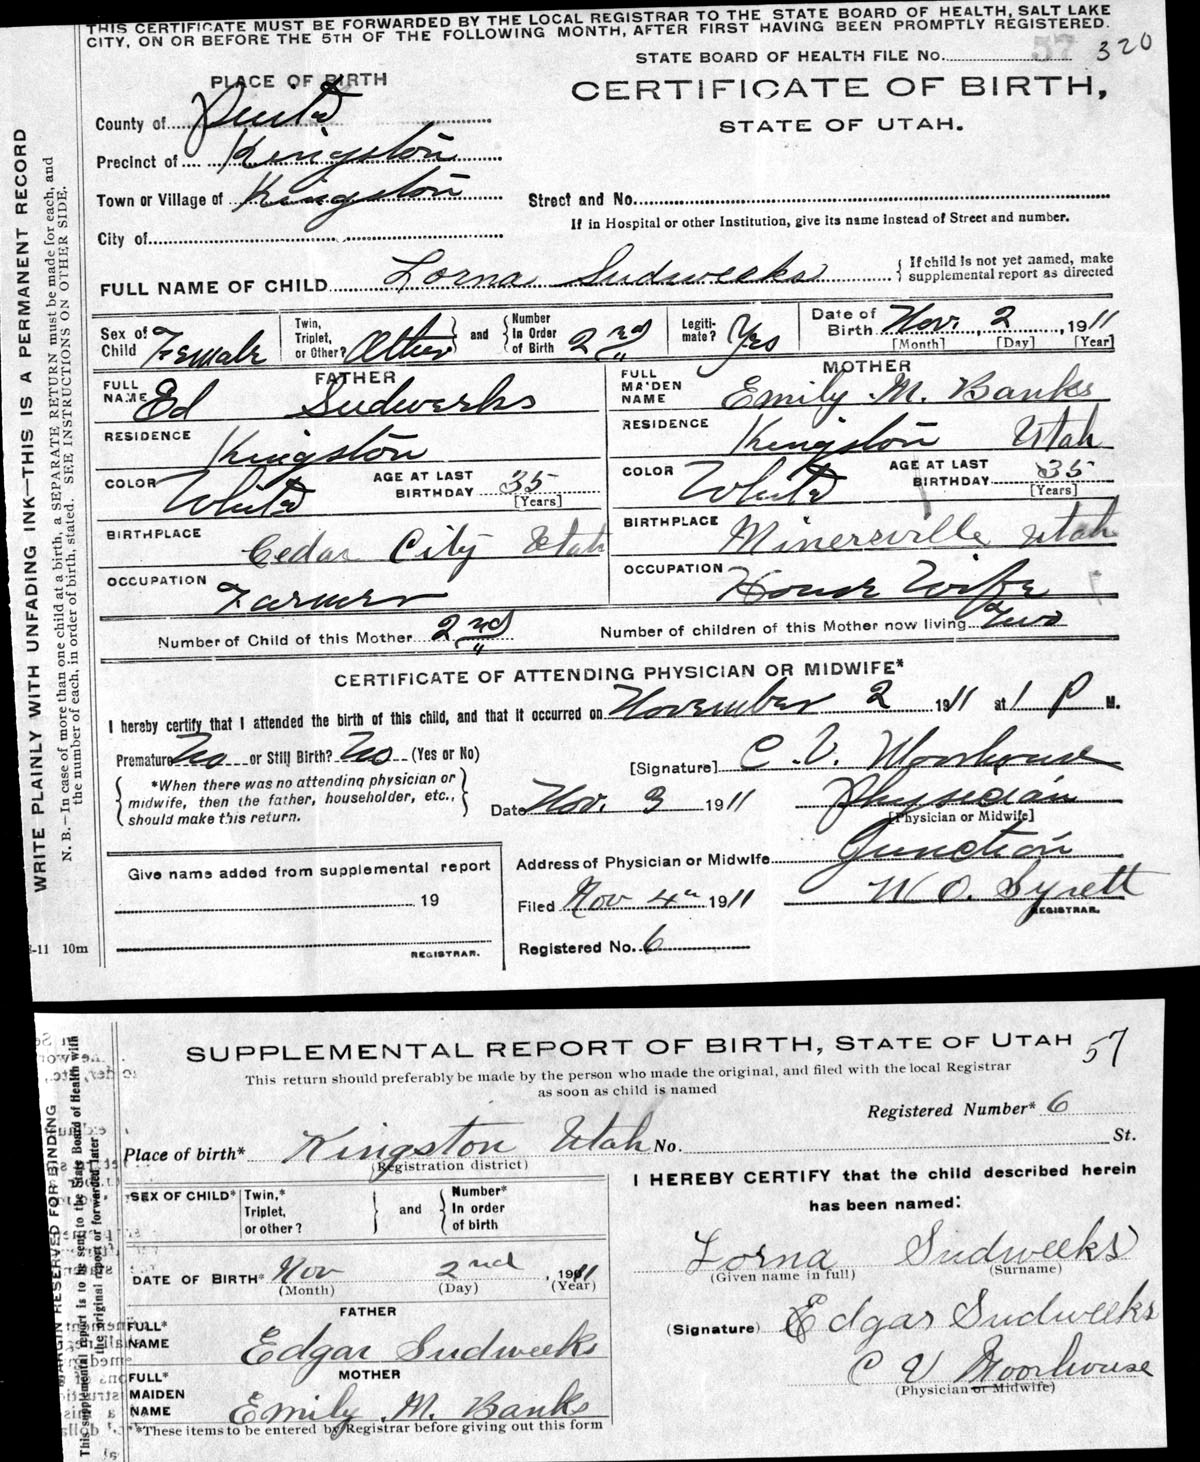 THIS CERTIFICATE MUST BE FORWARDED BY THE LOCAL REGISTRAR TO THE STATE BOARD OF HEALTH, SALT LAKE
CITY, ON OR BEFORE THE 5TH OF THE FOLLOWING MONTH, AFTER FIRST HAVING BEEN PROMPTLY REGISTERED.
STATE BOARD OF HEALTH FILE No. 57 320
PLACE OF BIRTH
CERTIFICATE OF BIRTH,
STATE OF UTAH.
County of
Precinct of Kingston
Town or Village of Kingston
Street and No.
If in Hospital or other Institution, give its name instead of Street and number.
City of
FULL NAME OF CHILD Lorna Sudweeks
If child is not yet named, make supplemental report as directed
Sex of Child Female
Twin, Triplet, or Other? Other
and Number In Order of Birth 2nd
Legitimate? Yes
Date of Birth Nov. 2, 1911
[Month] [Day] [Year]
FATHER
FULL NAME Ed Sudweeks
RESIDENCE Kingston
COLOR White AGE AT LAST BIRTHDAY 35
[Years]
BIRTHPLACE Cedar City Utah
OCCUPATION Farmer
MOTHER
FULL MAIDEN NAME Emily M. Banks
RESIDENCE Kingston Utah
COLOR White AGE AT LAST BIRTHDAY 35
[Years]
BIRTHPLACE Minersville Utah
OCCUPATION House Wife
Number of Child of this Mother 2nd Number of children of this Mother now living Two
CERTIFICATE OF ATTENDING PHYSICIAN OR MIDWIFE*
I hereby certify that I attended the birth of this child, and that it occurred on November 2 1911 at 1 P M.
Premature No or Still Birth? No (Yes or No)
*When there was no attending physician or
midwife, then the father, householder, etc.,
should make this return.
[Signature] C. V. Moorhouse
Date Nov. 3 1911 Physician
[Physician or Midwife]
Address of Physician or Midwife Junction
Filed Nov 4th 1911 W O. Syrett
REGISTRAR.
Registered No. 6
Give name added from supplemental report
19
REGISTRAR.
WRITE PLAINLY WITH UNFADING INK—THIS IS A PERMANENT RECORD
N. B.—In case of more than one child at a birth, a SEPARATE RETURN must be made for each, and
the number of each, in order of birth, stated. SEE INSTRUCTIONS ON OTHER SIDE.
-11 10m
SUPPLEMENTAL REPORT OF BIRTH, STATE OF UTAH 57
This return should preferably be made by the person who made the original, and filed with the local Registrar
as soon as child is named
Registered Number* 6
Place of birth* Kingston Utah No. St.
(Registration district)
SEX OF CHILD* Twin,* Triplet, or other? and Number* In order of birth
DATE OF BIRTH* Nov 2nd, 1911
(Month) (Day) (Year)
FATHER
FULL* NAME Edgar Sudweeks
MOTHER
FULL* MAIDEN NAME Emily M. Banks
*These items to be entered by Registrar before giving out this form
I HEREBY CERTIFY that the child described herein
has been named:
Lorna Sudweeks
(Given name in full) (Surname)
(Signature) Edgar Sudweeks
C V Moorhouse
(Physician or Midwife)
MARGIN RESERVED FOR BINDING
This supplemental report is to be sent to the State Board of Health with
the original report or forwarded later